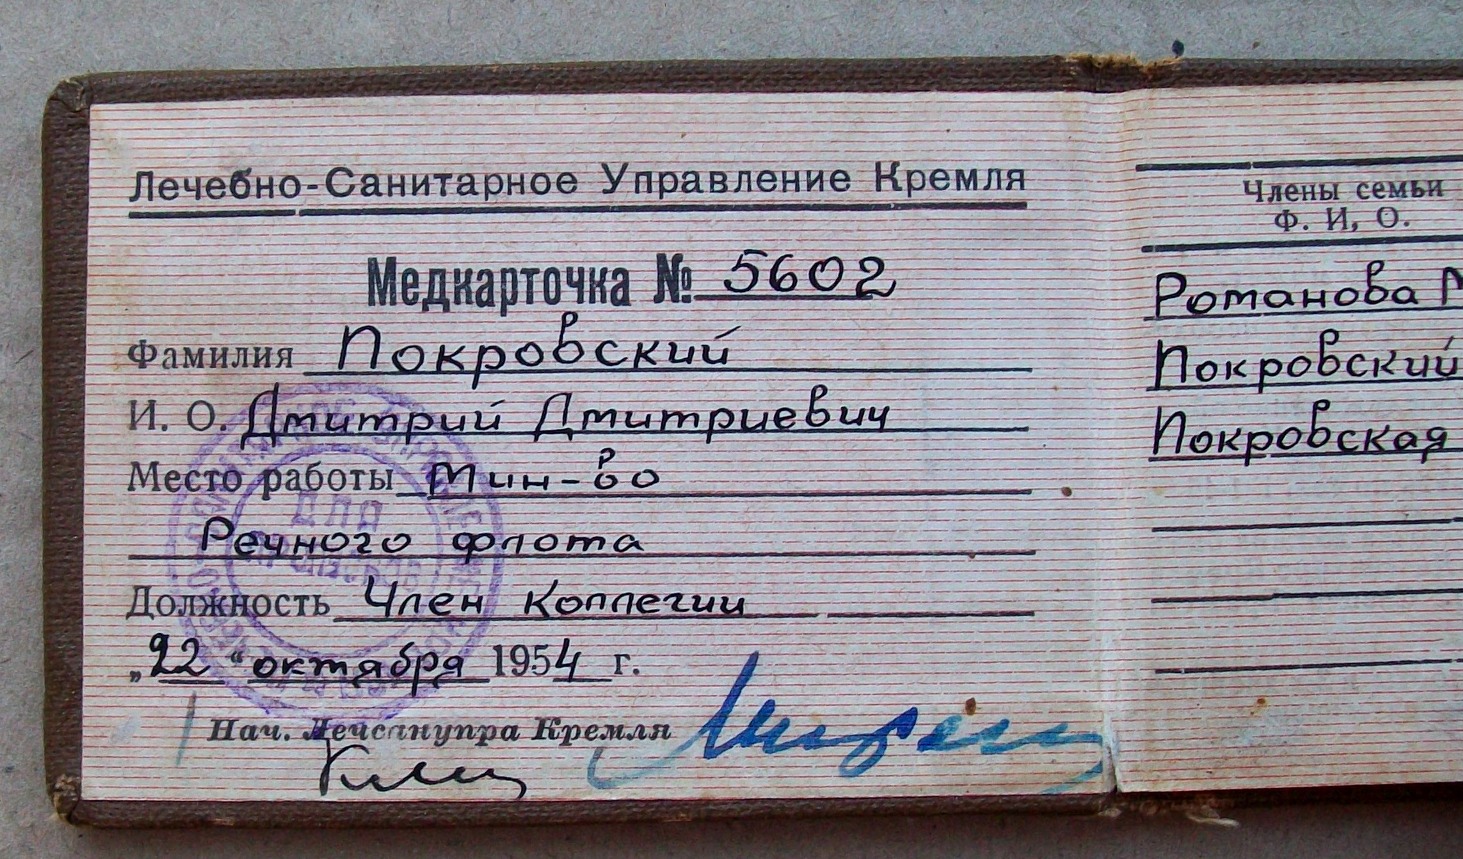 Лечебно-Санитарное Управление Кремля
Медкарточка № 5602
Фамилия Покровский
И. О. Дмитрий Дмитриевич
Место работы Мин-во
Речного флота
Должность Член Коллегии
„22“ октября 1954 г.
Нач. Лечсанупра Кремля
Члены семьи
Ф. И, О.
Романова
Покровский
Покровская